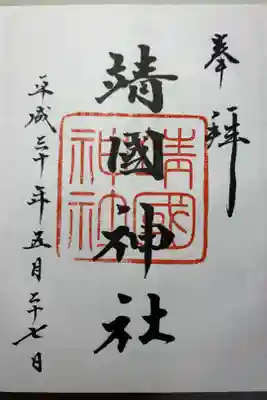 奉拜
靖國神社
靖國神社
平成三十年五月二十七日